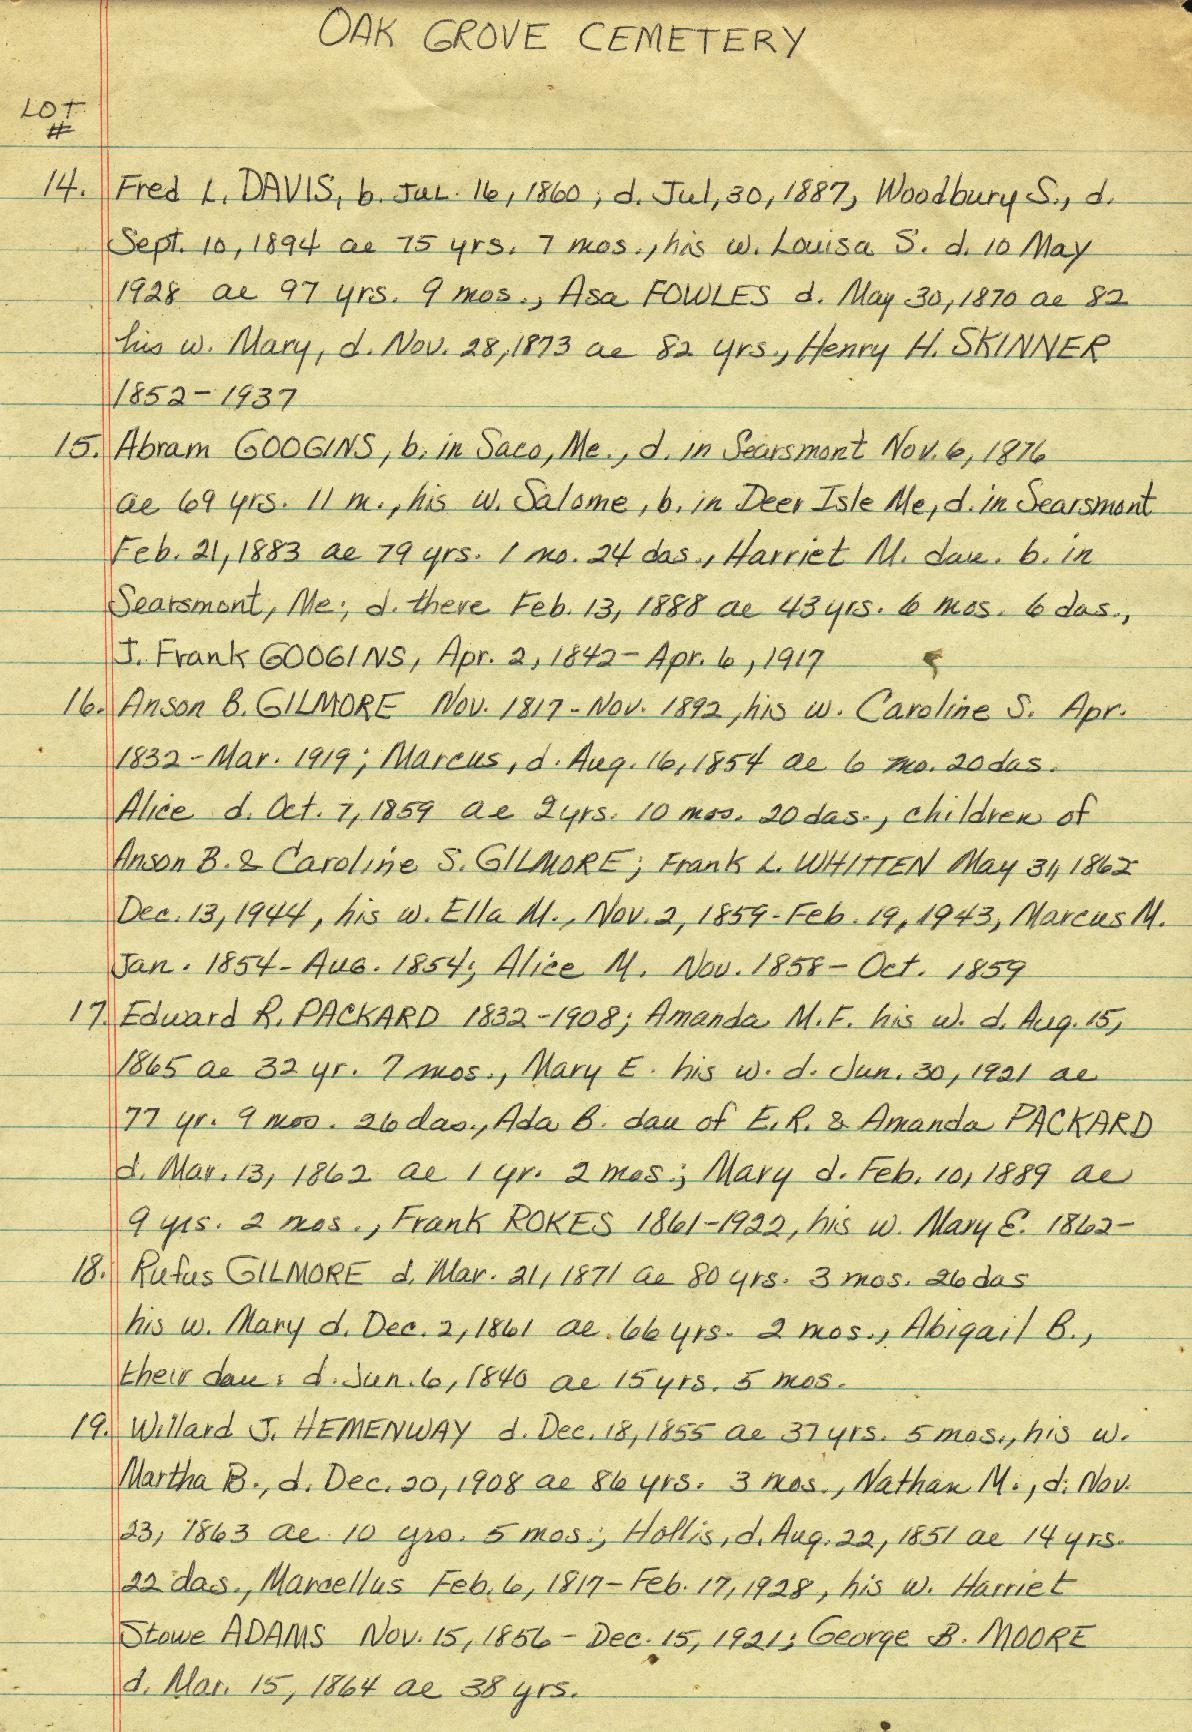 OAK GROVE CEMETERY
LOT
#
14. Fred L. DAVIS, b. JUL. 16, 1860; d. Jul, 30, 1887, Woodbury S., d.
Sept. 10, 1894 ae 75 yrs. 7 mos., his w. Louisa S. d. 10 May
1928 ae 97 yrs. 9 mos., Asa FOWLES d. May 30, 1870 ae 82
his w. Mary, d. Nov. 28, 1873 ae 82 yrs., Henry H. SKINNER
1852-1937
15. Abram GOOGINS, b. in Saco, Me., d. in Searsmont Nov. 6, 1876
ae 69 yrs. 11 m., his w. Salome, b. in Deer Isle Me, d. in Searsmont
Feb. 21, 1883 ae 79 yrs. 1 mo. 24 das., Harriet M. dau. b. in
Searsmont, Me; d. there Feb. 13, 1888 ae 43 yrs. 6 mos. 6 das.,
J. Frank GOOGINS, Apr. 2, 1842- Apr. 6, 1917
16. Anson B. GILMORE Nov. 1817-Nov. 1892, his w. Caroline S. Apr.
1832-Mar. 1919; Marcus, d. Aug. 16, 1854 ae 6 mo. 20 das.
Alice d. Oct. 7, 1859 ae 2 yrs. 10 mos. 20 das., children of
Anson B. & Caroline S. GILMORE; Frank L. WHITTEN May 31, 1862
Dec. 13, 1944, his w. Ella M., Nov. 2, 1859-Feb. 19, 1943, Marcus M.
Jan. 1854-AUG. 1854; Alice M. Nov. 1858- Oct. 1859
17. Edward R. PACKARD 1832-1908; Amanda M.F. his w. d. Aug. 15,
1865 ae 32 yr. 7 mos., Mary E. his w. d. Jun. 30, 1921 ae
77 yr. 9 mos. 26 das., Ada B. dau of E.R. & Amanda PACKARD
d. Mar. 13, 1862 ae 1 yr. 2 mos.; Mary d. Feb. 10, 1889 ae
9 yrs. 2 mos., Frank ROKES 1861-1922, his w. Mary E. 1862-
18. Rufus GILMORE d. Mar. 21, 1871 ae 80 yrs. 3 mos. 26 das
his w. Mary d. Dec. 2, 1861 ae. 66 yrs. 2 mos., Abigail B.,
their dau. d. Jun. 6, 1840 ae 15 yrs. 5 mos.
19. Willard J. HEMENWAY d. Dec. 18, 1855 ae 37 yrs. 5 mos., his w.
Martha B., d. Dec. 20, 1908 ae 86 yrs. 3 mos., Nathan M., d. Nov.
23, 1863 ae 10 yrs. 5 mos.; Hollis, d. Aug. 22, 1851 ae 14 yrs.
22 das., Marcellus Feb. 6, 1817-Feb. 17, 1928, his w. Harriet
Stowe ADAMS Nov. 15, 1856- Dec. 15, 1921; George B. MOORE
d. Mar. 15, 1864 ae 38 yrs.